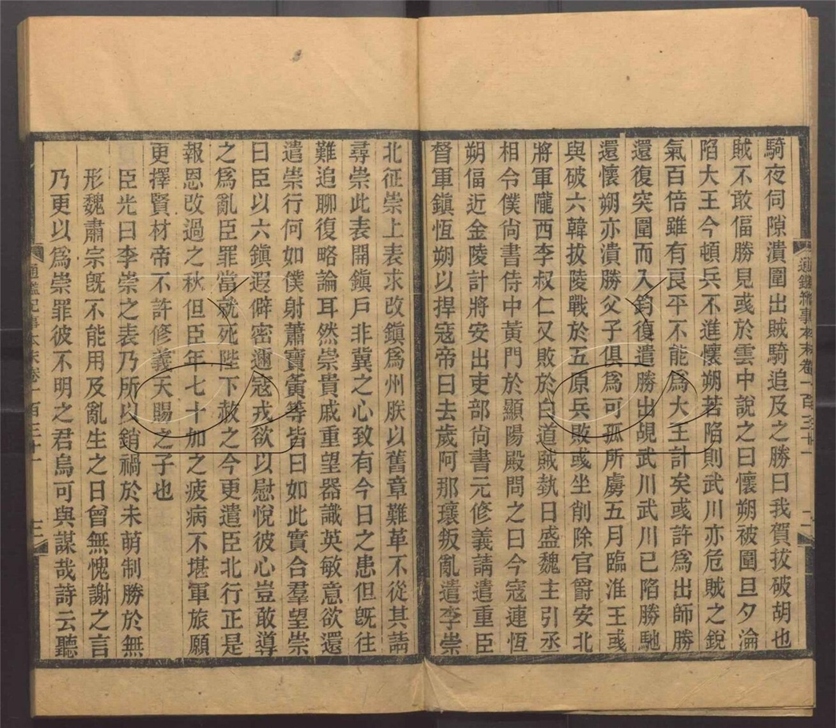 騎夜伺隙潰圍出賊騎追及之勝曰我賀拔破胡也
賊不敢偪勝見彧於雲中說之曰懷朔被圍旦夕淪
陷大王今頓兵不進懷朔若陷則武川亦危賊之銳
氣百倍雖有良平不能爲大王計矣彧許爲出師勝
還復突圍而入鈞復遣勝出覘武川武川已陷勝馳
還懷朔亦潰勝父子俱爲可孤所虜五月臨淮王彧
與破六韓拔陵戰於五原兵敗彧坐削除官爵安北
將軍隴西李叔仁又敗於白道賊埶日盛魏主引丞
相令僕尙書侍中黃門於顯陽殿問之曰今寇連恆
朔偪近金陵計將安出吏部尙書元修義請遣重臣
督軍鎭恆朔以捍寇帝曰去歲阿那瓌叛亂遣李崇
通鑑紀事本末卷一百三十一
北征崇上表求改鎭爲州朕以舊章難革不從其請
尋崇此表開鎭戶非冀之心致有今日之患但旣往
難追聊復略論耳然崇貴戚重望器識英敏意欲還
遣崇行何如僕射蕭寶夤等皆曰如此實合羣望崇
曰臣以六鎭遐僻密邇寇戎欲以慰悅彼心豈敢導
之爲亂臣罪當就死陛下赦之今更遣臣北行正是
報恩改過之秋但臣年七十加之疲病不堪軍旅願
更擇賢材帝不許修義天賜之子也
臣光曰李崇之表乃所以銷禍於未萌制勝於無
形魏肅宗旣不能用及亂生之日曾無愧謝之言
乃更以爲崇罪彼不明之君烏可與謀哉詩云聽
通鑑紀事本末卷一百三十一